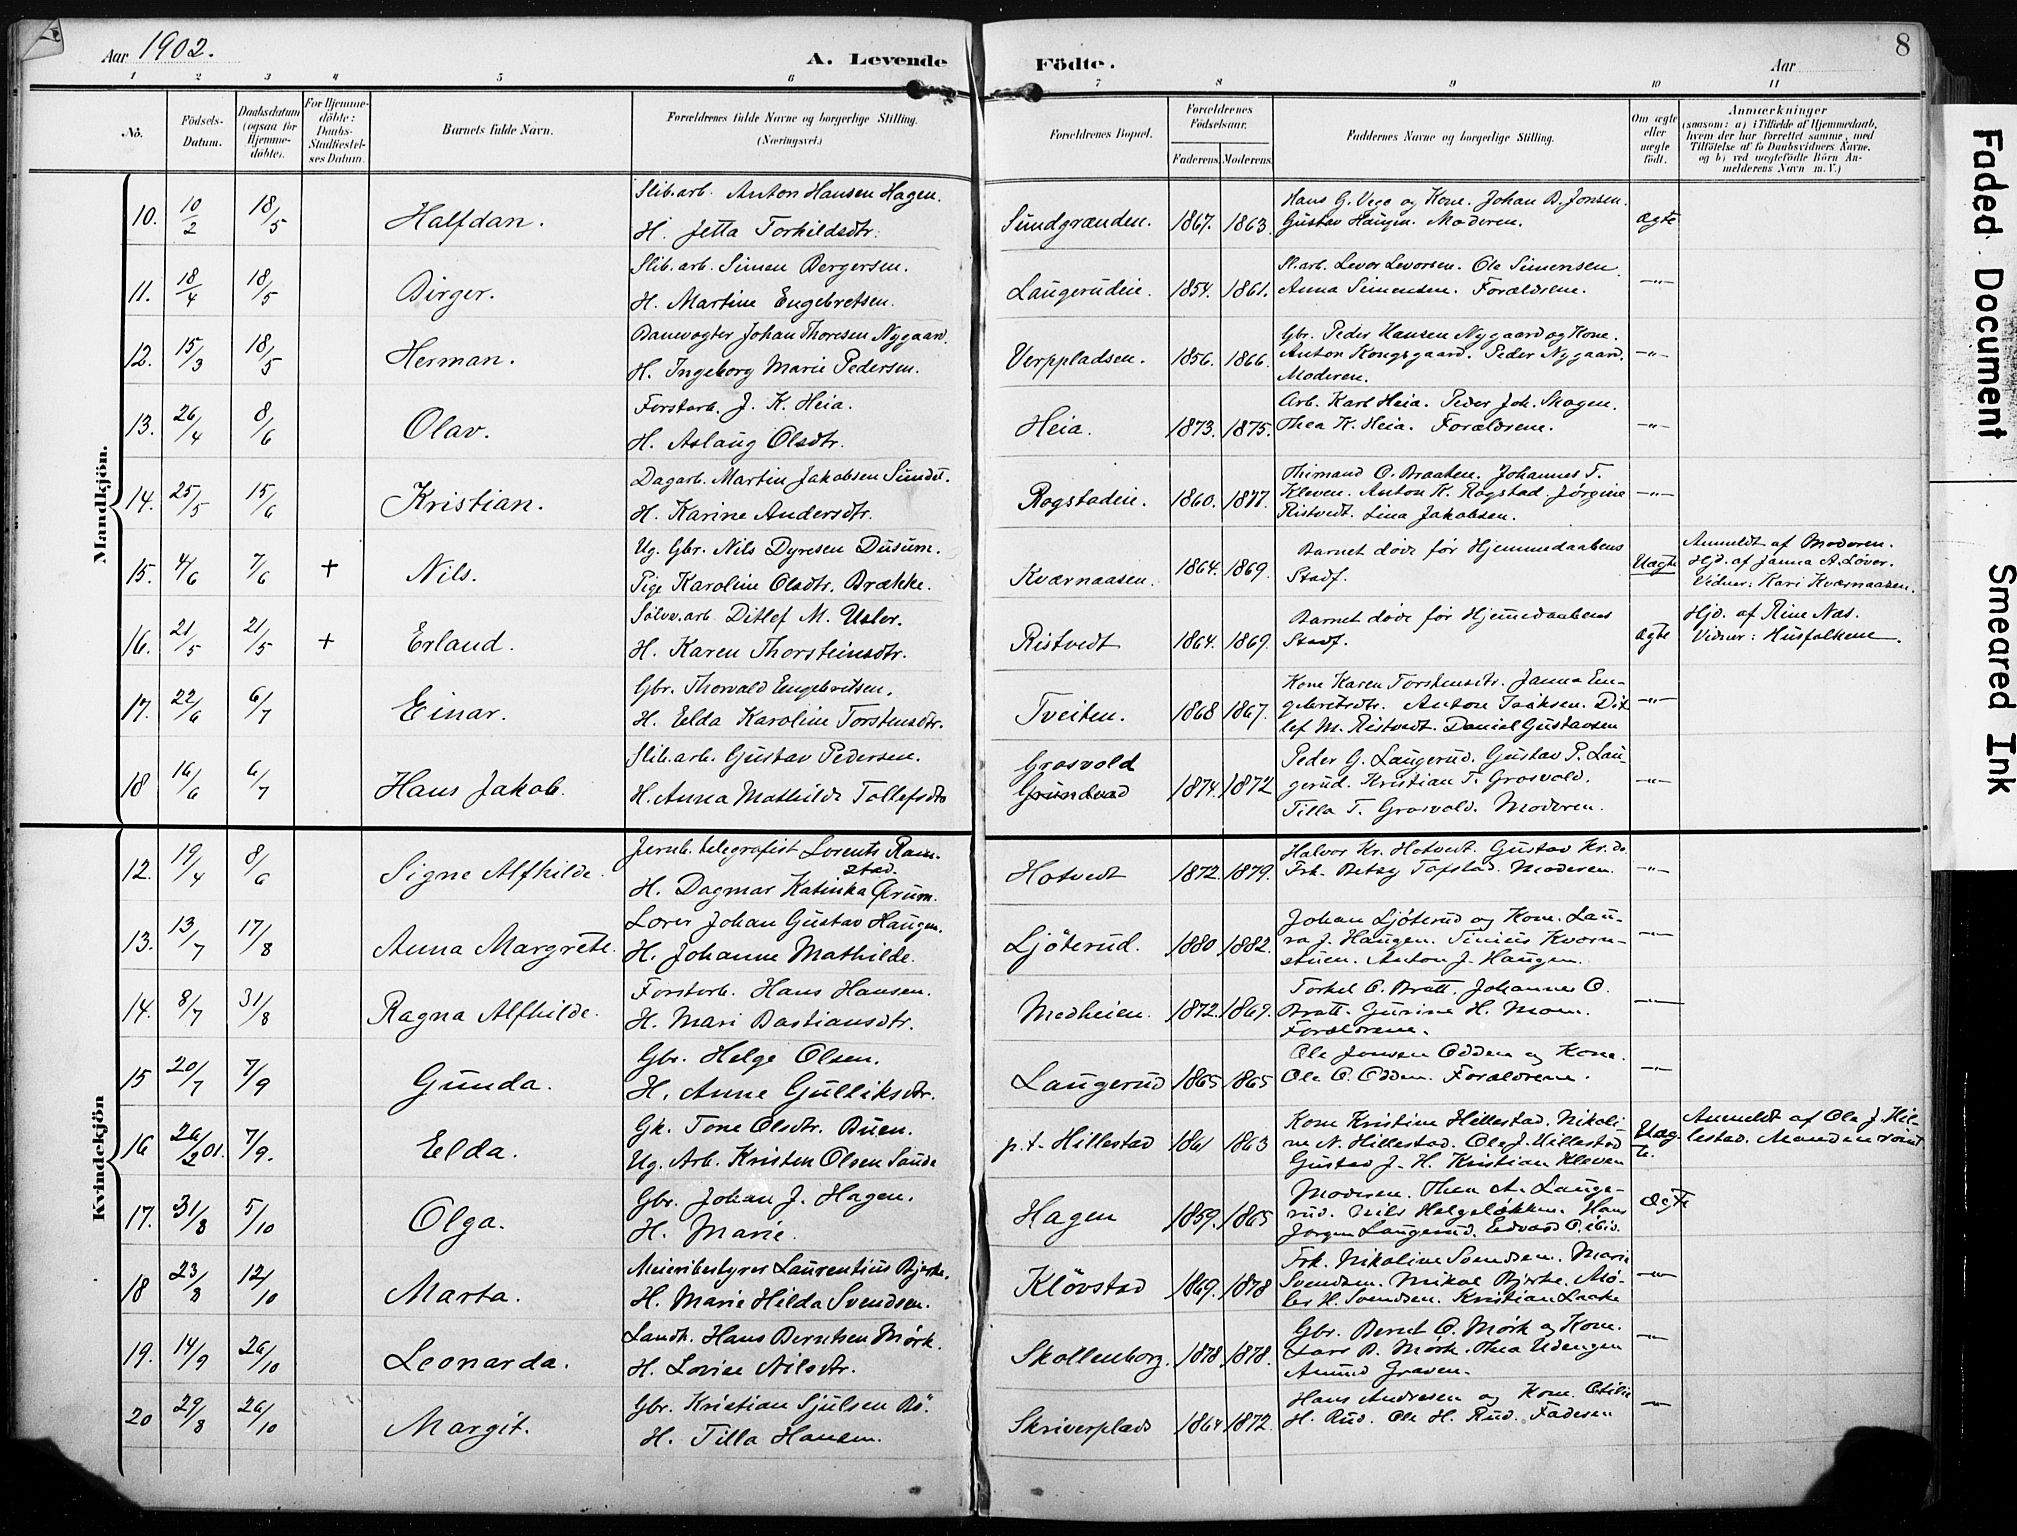 Aar 1902.
A. Levende Födte.
Aar
8
1 2 3 4 5 6 7 8 9 10 11
No.
Födsels-
Datum.
Daabsdatum
(ogsaa for
Hjemme-
döbte).
For Hjemme-
döbte:
Daabs-
Stadfæstel-
ses Datum.
Barnets fulde Navn.
Forældrenes fulde Navne og borgerlige Stilling.
(Næringsvei.)
Forældrenes Bopæl.
Forældrenes
Födselsaar.
Faderens. Moderens.
Faddernes Navne og borgerlige Stilling.
Om ægte
eller
uægte
födt.
Anmærkninger
(saasom: a) i Tilfælde af Hjemmedaab,
hvem der har forrettet samme, med
Tilföielse af to Daabsvidners Navne,
og b) ved uægtefödte Börn An-
melderens Navn m. V.)
Mandkjön.
10. 10/2 18/5 Halfdan.
Slib.arb. Anton Hansen Hagen.
H. Jetta Torkildsdtr.
Sundgrænden. 1867. 1863.
Hans G. Vego og Kone. Johan B. Jonsen.
Gustav Haugen. Moderen.
Ægte
11. 18/4 18/5 Birger.
Slib.arb. Simen Bergersen.
H. Martine Engebretsen.
Laugerudeie. 1854. 1861.
Sl.arb. Levor Levorsen. Ole Simensen.
Anna Simensen. Forældrene.
—"—
12. 15/3 18/5 Herman.
Banevogter Johan Thoresen Nygaard.
H. Ingeborg Marie Pedersen.
Verppladsen. 1856. 1866.
Gbr. Peder Hansen Nygaard og Kone.
Anton Kongsgaard. Peder Nygaard.
Moderen.
—"—
13. 26/4 8/6 Olav.
Forstarb. J. K. Heia.
H. Aslaug Olsdtr.
Heia. 1873. 1875.
Arb. Karl Heia. Peder Joh. Skogen.
Thea K. Heia. Forældrene.
—"—
14. 25/5 15/6 Kristian.
Dagarb. Martin Jakobsen Sundet.
H. Karine Andersdtr.
Rogstadeie. 1860. 1877.
O. Braaten. Johannes T.
Kleven. Anton K. Rogstad. Jørgine
Ristvedt. Lina Jakobsen.
—"—
15. 4/6 7/6 + Nils.
Ug. Gbr. Nils Dyresen Dusum.
Pige Karoline Olsdtr. Brække.
Kværnaasen. 1864. 1869.
Barnet døde før Hjemmedaabens
Stadf.
Uægte
Anmeldt af Moderen.
Hjd. af Janna A. Løver.
Vidner: Kari Kværnaasen.
16. 21/5 21/5 + Erland.
Sølvv.arb. Ditlef M. Usler.
H. Karen Thorsteinsdtr.
Ristvedt 1864. 1869.
Barnet døde før Hjemedaabens
Stadf.
Ægte
Hjd. af Rine Næs.
Vidner: Husfolkene.
17. 22/6 6/7 Einar.
Gbr. Thorvald Engebretsen.
H. Elda Karoline Torstensdtr.
Tveiten. 1868 1867.
Kone Karen Torstensdtr. Janna En-
gebretsdtr. Anton Isaksen. Dit-
lef M. Ristvedt. Daniel Gustavsen
—"—
18 16/6 6/7 Hans Jakob.
Slib.arb. Gustav Pedersen.
H. Anna Mathilde Tollefsdtr
Grosvold
1874. 1872
Peder G. Laugerud. Gustav P. Lau-
gerud. Kristian T. Grosvold.
Tilla T. Grosvold. Moderen.
—"—
Kvindekjön
12. 19/4 8/6 Signe Alfhilde.
Jernb. telegrafist Lorents Ram-
stad.
H. Dagmar Katinka Grum.
Hotvedt 1872. 1879.
Halvor Kr. Hotvedt. Gustav Kr. do.
Frk. Betsy Tofstad. Moderen.
—"—
13. 13/7 17/8 Anna Margrete.
Lærer Johan Gustav Haugen.
H. Johanne Mathilde.
Ljöterud. 1880 1882.
Johan Ljöterud og Kone. Lau-
ra J. Haugen. Sinius Kværn-
stuen. Anton J. Haugen.
—"—
14. 8/7 31/8 Ragna Alfhilde.
Forstarb. Hans Hansen.
H. Mari Bastiansdtr.
Medheien. 1872. 1869.
Torkel O. Bratt. Johannes O.
Bratt. Gurine H. Moen.
Forældrene.
—"—
15 20/7 7/9 Gunda.
Gbr. Helge Olsen.
H. Anne Gulliksdtr.
Laugerud 1865 1865
Ole Jonsen Odden og Kone.
Ole O. Odden. Forældrene.
—"—
16 26/2 01. 7/9. Elda.
Gk. Tone Olsdtr. Buen.
Ug. Arb. Kristen Olsen Sande
p.t. Hillestad 1861 1863
Kone Kristine Hillestad. Nikoli-
ne N. Hillestad. Ole J. Hillestad
Gustav J. H. Kristian Kleven
Uæg-
te.
Anmeldt af Ole J. Hil-
lestad. Manden
17. 31/8 5/10 Olga.
Gbr. Johan J. Hagen.
H. Marie.
Hagen 1859. 1865
Moderen. Thea A. Lauge-
rud. Nils Helgeløkken. Hans
Jørgen Laugerud. Edvard O. ibid.
Ægte
18 23/8 12/10 Marta.
Meieribestyrer Laurentius Bjerke.
H. Marie Hilda Svendsen.
Klövstad 1869. 1878
Frk. Nikoline Svendsen. Marie
Svendsen. Mikal Bjerke. Mø-
ler H. Svendsen. Kristian Laake
—"—
19. 14/9 26/10 Leonarda.
Landh. Hans Berntsen Mørk.
H. Lovise Nilsdtr.
Skollenborg. 1878. 1878.
Gbr. Bernt O. Mørk og Kone.
Lars B. Mørk. Thea Udengen
Amund Graven.
—"—
20 29/8 26/10 Margit.
Gbr. Kristian Sjulsen Bö.
H. Tilla Hansen.
Skriverplads 1864 1872.
Hans Andresen og Kone. Otilie
H. Rud. Ole H. Rud. Faderen
—"—
Faded Document
Smeared Ink